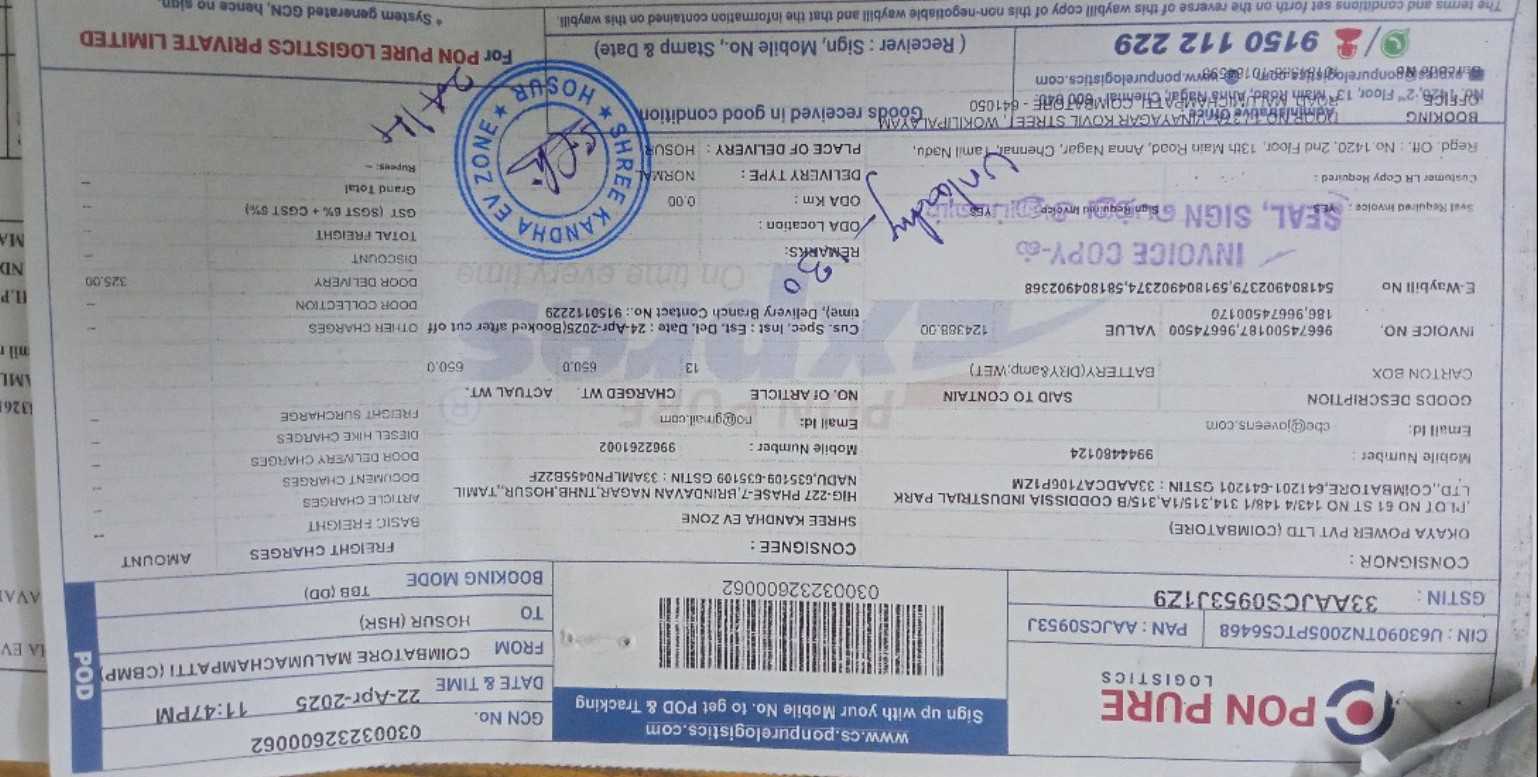 PON PURE
LOGISTICS
CIN : U63090TN2005PTC56468 PAN : AAJCS0953J
GSTIN : 33AAJCS0953J1Z9
www.cs.ponpurelogistics.com
Sign up with your Mobile No. to get POD & Tracking
0300323260062
GCN No. 0300323260062
DATE & TIME 22-Apr-2025 11:47PM
FROM COIMBATORE MALUMACHAMPATTI (CBMP)
TO HOSUR (HSR)
BOOKING MODE TBB (DD)
POD
CONSIGNOR :
OKAYA POWER PVT LTD (COIMBATORE)
,PLOT NO 61 ST NO 143/4 148/1 314,315/1A,315/B CODDISSIA INDUSTRIAL PARK
LTD,,COIMBATORE,641201-641201 GSTIN : 33AADCA7106P1ZM
Mobile Number : 9944480124
Email Id: cbe@javeens.com
CONSIGNEE :
SHREE KANDHA EV ZONE
HIG-227 PHASE-7,BRINDAVAN NAGAR,TNHB,HOSUR,,TAMIL
NADU,635109-635109 GSTIN : 33AMLPN0455B2ZF
Mobile Number : 9962261002
Email Id: no@gmail.com
FREIGHT CHARGES AMOUNT
BASIC FREIGHT --
ARTICLE CHARGES --
DOCUMENT CHARGES --
DOOR DELIVERY CHARGES --
DIESEL HIKE CHARGES --
FREIGHT SURCHARGE --
OTHER CHARGES --
DOOR COLLECTION --
DOOR DELIVERY 325.00
DISCOUNT --
TOTAL FREIGHT --
GST (SGST 6% + CGST 6%) --
Grand Total --
Rupees: --
GOODS DESCRIPTION SAID TO CONTAIN NO. Of ARTICLE CHARGED WT ACTUAL WT.
CARTON BOX BATTERY(DRY&amp;WET) 13 650.0 650.0
INVOICE NO. 96674500187,96674500 VALUE 124388.00
186,96674500170
Cus. Spec, Inst : Est. Del. Date : 24-Apr-2025(Booked after cut off
time), Delivery Branch Contact No.: 9150112229
E-Waybill No 541804902379,591804902374,581804902368
REMARKS:
30
Unloading
INVOICE COPY-ல்
SEAL, SIGN
Seal Required Invoice : YES Sign Required Invoice : YES
Customer LR Copy Required :
ODA Location :
ODA Km : 0.00
DELIVERY TYPE : NORMAL
PLACE OF DELIVERY : HOSUR
Regd. Off. : No.1420, 2nd Floor, 13th Main Road, Anna Nagar, Chennai, Tamil Nadu,
BOOKING
OFFICE
DOOR NO 1/37A VINAYAGAR KOVIL STREET, WOKILIPALAYAM
ROAD, MALUMICHAMPATTI, COIMBATORE - 641050
Administrative Office
No. 1420, 2nd Floor, 13th Main Road, Anna Nagar, Chennai - 600 040.
www.ponpurelogistics.com
9150 112 229
Goods received in good condition
( Receiver : Sign, Mobile No., Stamp & Date)
SHREE KANDHA EV ZONE ★ HOSUR ★
For PON PURE LOGISTICS PRIVATE LIMITED
The terms and conditions set forth on the reverse of this waybill copy of this non-negotiable waybill and that the information contained on this waybill.
* System generated GCN, hence no sign.
PON PURE
expres
On time every time